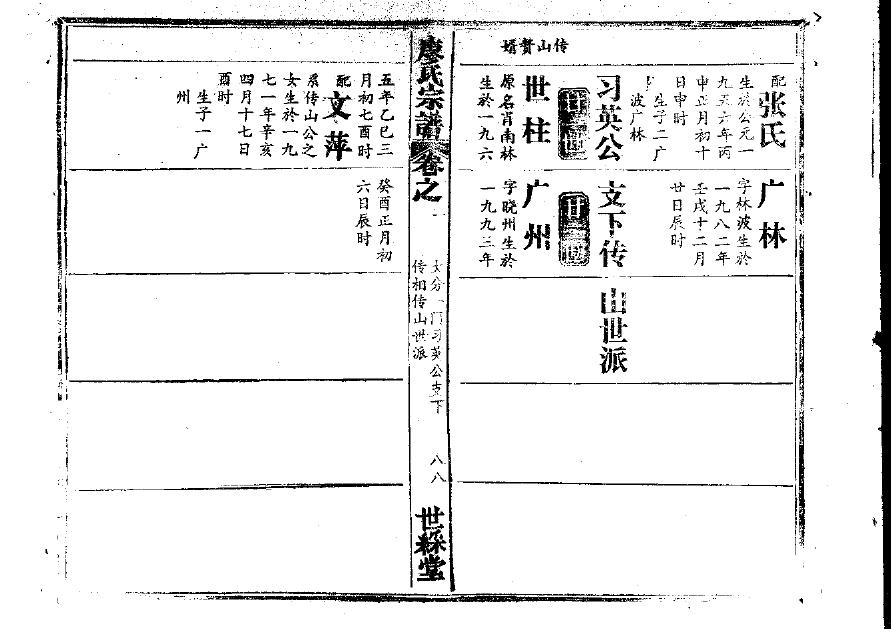 传山贅婿
配张氏
生於公元一
九五六年丙
申正月初十
日申时
生子二广
波广林
广林
字林波生於
一九八二年
壬戌十二月
廿日辰时
习英公支下传山世派
世柱
原名肖南林
生於一九六
广州
字晓州生於
一九九三年
廖氏宗譜卷之
分一门习英公支下
传相传山世派
八八
世綵堂
五年乙巳三
月初七酉时
配文萍
系传山公之
女生於一九
七一年辛亥
四月十七日
酉时
生子一广
州
癸酉正月初
六日辰时